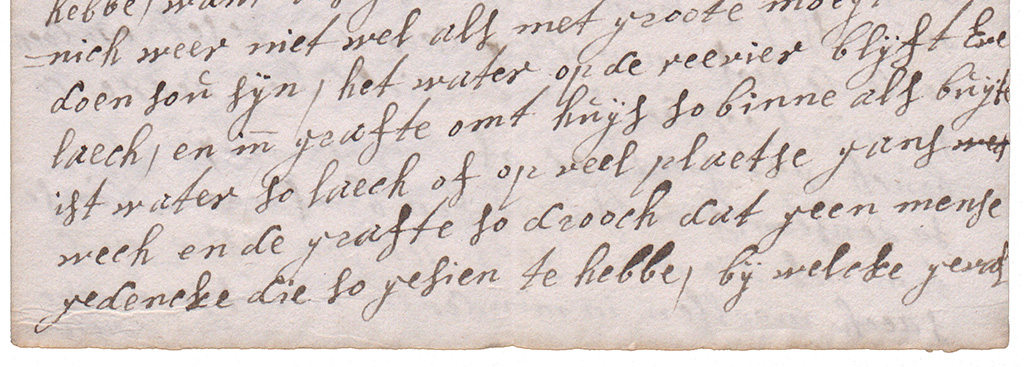 hebbe, want
nich weer niet wel als met groote
doen soŭ sÿn, het water op de reevier blÿft Eve
laech, en in̄ grafte omt hŭÿs so binne als bŭÿte
ist water so laech of op veel plaetse gans
wech en de grafte so drooch dat geen mense
gedencke die so gesien te hebbe, bÿ welcke